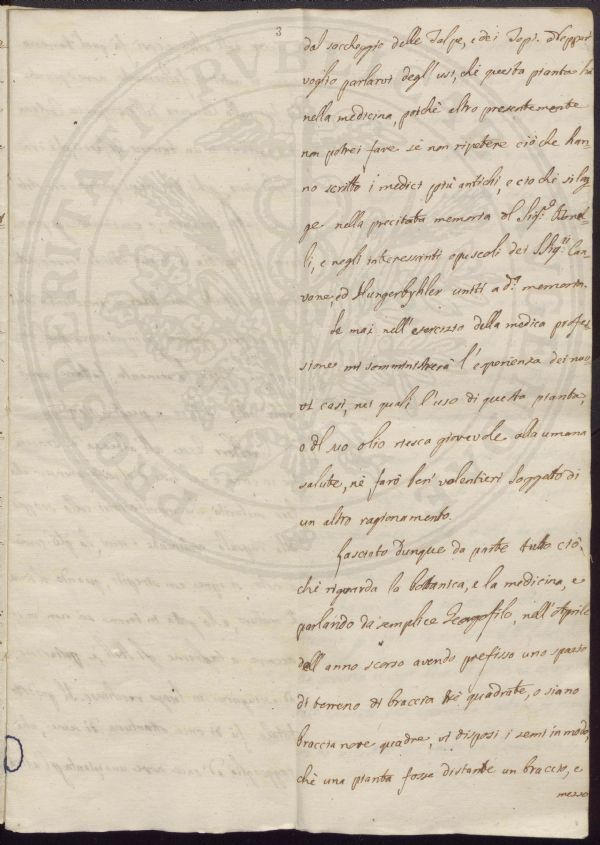 3
dal saccheggio delle Talpe, e dei Topi. Neppur
voglio parlarvi degl'usi, chè questa pianta ha
nella medicina, poichè altro presentemente
non potrei fare se non ripetere ciò che han
no scritto i medici più antichi, e ciò che si leg
ge nella precitata memoria del Sig.
li, e negli interessanti opuscoli dei Sig.ri Can
vone, ed Hungerbyhler uniti a d.a memoria.
Se mai nell'esercizio della medica profes
sione mi somministrerà l'esperienza dei nuo
vi casi, nei quali l'uso di questa pianta,
o del suo olio riesca giovevole alla umana
salute, nè farò ben volentieri soggetto di
un altro ragionamento.
Lasciato dunque da parte tutto ciò
chè riguarda la bottanica, e la medicina, e
parlando da semplice Georgofilo, nell'Aprile
dell'anno scorso avendo prefisso uno spazio
di terreno di braccia trè quadrate, o siano
braccia nove quadre, vi disposi i semi in modo,
chè una pianta fosse distante un braccio, e
mezzo